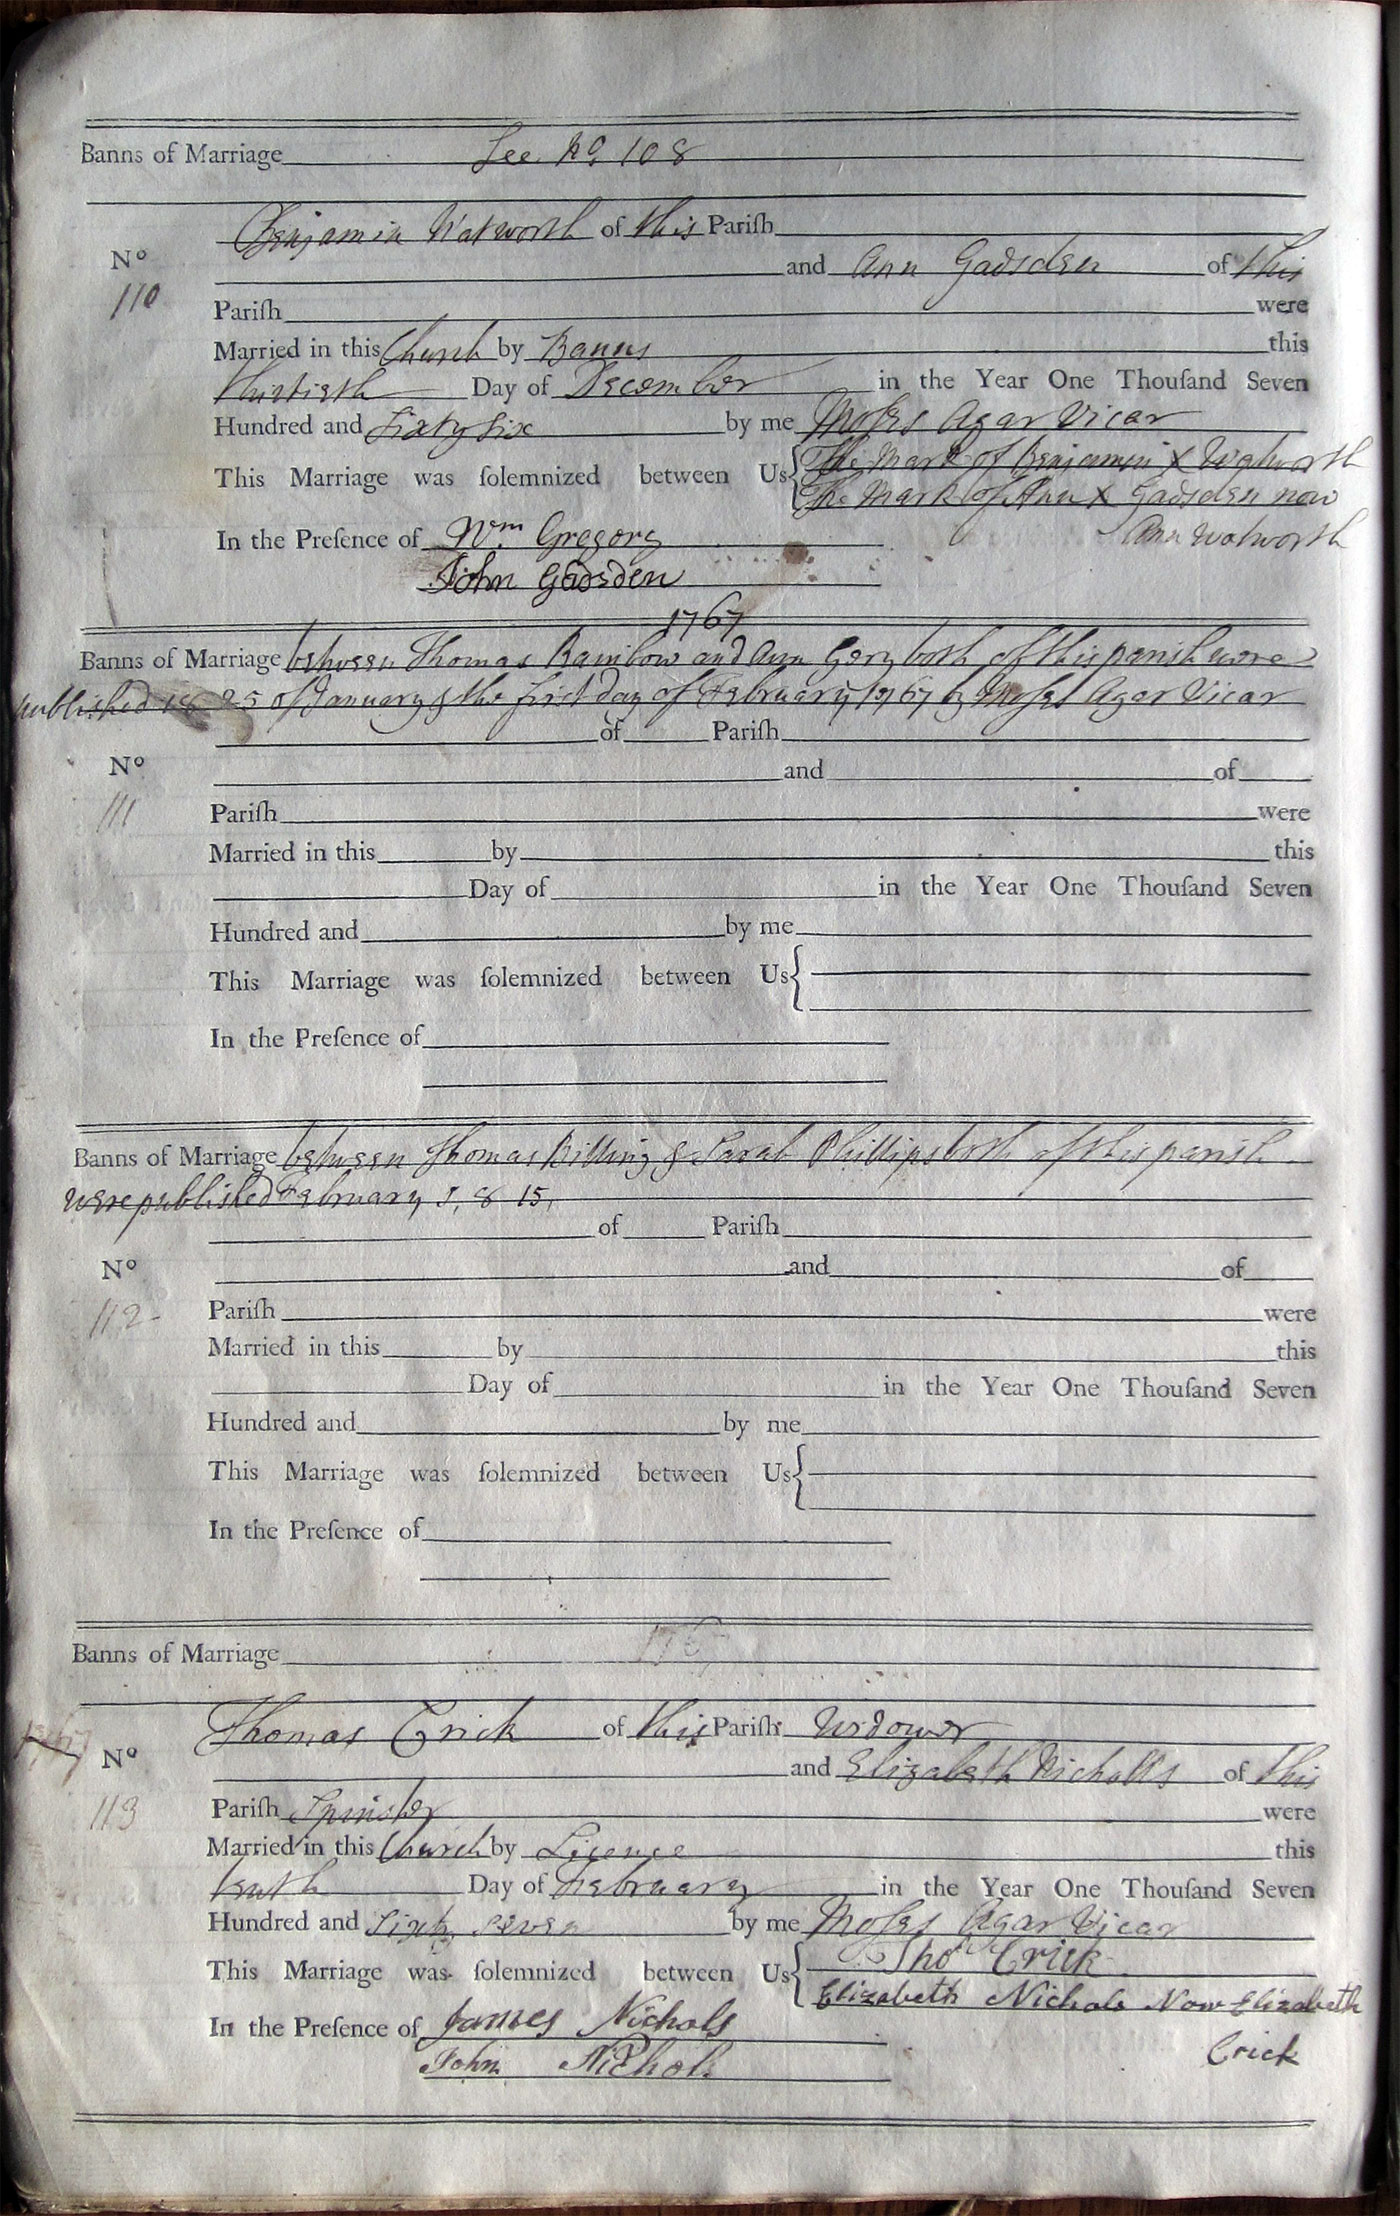 Banns of Marriage See No. 108
Benjamin Walworth of this Pariſh
No and Ann Gadsden of this
110 Pariſh were
Married in this Church by Banns this
thirtieth Day of December in the Year One Thouſand Seven
Hundred and Sixty Six by me Moſes Agar Vicar
This Marriage was ſolemnized between Us The Mark of Benjamin X Walworth
The Mark of Ann X Gadsden now
Ann Walworth
In the Preſence of Wm Gregory
John Gadsden
1767
Banns of Marriage between Thomas Rainbow and Ann Gery both of this parish were
published 18 25 of January & the first day of February 1767 by Moſes Agar Vicar
of Pariſh
No and of
111 Pariſh were
Married in this by this
Day of in the Year One Thouſand Seven
Hundred and by me
This Marriage was ſolemnized between Us
In the Preſence of
Banns of Marriage between Thomas Billing & Sarah Phillips both of this parish
were published February 1, 8 15,
of Pariſh
No and of
112 Pariſh were
Married in this by this
Day of in the Year One Thouſand Seven
Hundred and by me
This Marriage was ſolemnized between Us
In the Preſence of
1767
Banns of Marriage
Thomas Crick of this Pariſh Widower
1767 No and Elizabeth Nicholls of this
113 Pariſh Spinster were
Married in this Church by Licence this
tenth Day of February in the Year One Thouſand Seven
Hundred and Sixty Seven by me Moſes Agar Vicar
This Marriage was ſolemnized between Us Tho Crick
Elizabeth Nichols Now Elizabeth
Crick
In the Preſence of James Nichols
John Nichols